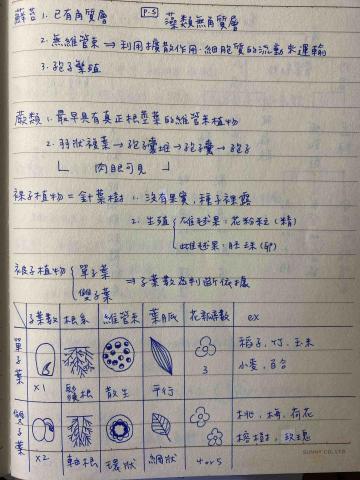 蘚苔 1. 已有角質層 P.5 藻類無角質層
2. 無維管束 → 利用擴散作用、細胞質的流動來運輸
3. 孢子繁殖
蕨類 1. 最早具有真正根莖葉的維管束植物
2. 羽狀複葉 → 孢子囊堆 → 孢子囊 → 孢子
肉眼可見
裸子植物 = 針葉樹 1. 沒有果實，種子裸露
2. 生殖 雄毬果：花粉粒(精)
雌毬果：胚珠(卵)
被子植物 單子葉
雙子葉 ⇒ 子葉數為判斷依據
子葉數 根系 維管束 葉脈 花瓣數 ex
單子葉 x1 鬚根 散生 平行 3 稻子、竹、玉米
小麥、百合
雙子葉 x2 軸根 環狀 網狀 4 or 5 桃、梅、荷花
榕樹、玫瑰
SUNNY CO., LTD